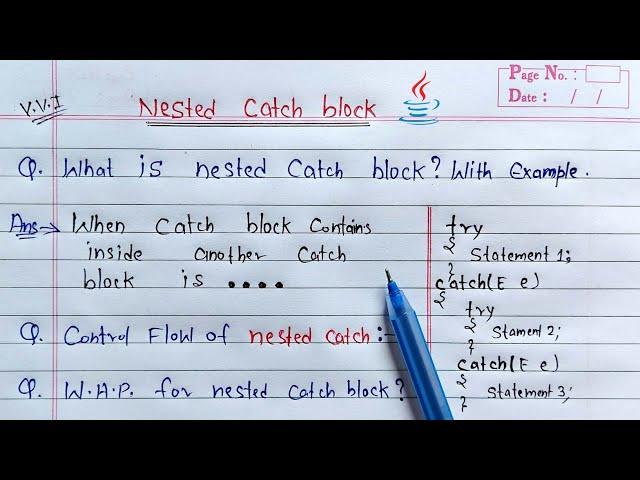 Page No. :
Date : / /
V.V.I
Nested Catch block
Q. What is nested Catch block? With Example.
Ans→ When Catch block Contains
inside another Catch
block is ....
Q. Control Flow of nested catch:-
Q. W.A.P. for nested Catch block?
try
{
Statement 1;
}
catch(E e)
{
try
{
Stament 2;
}
catch(E e)
{
Statement 3;
}